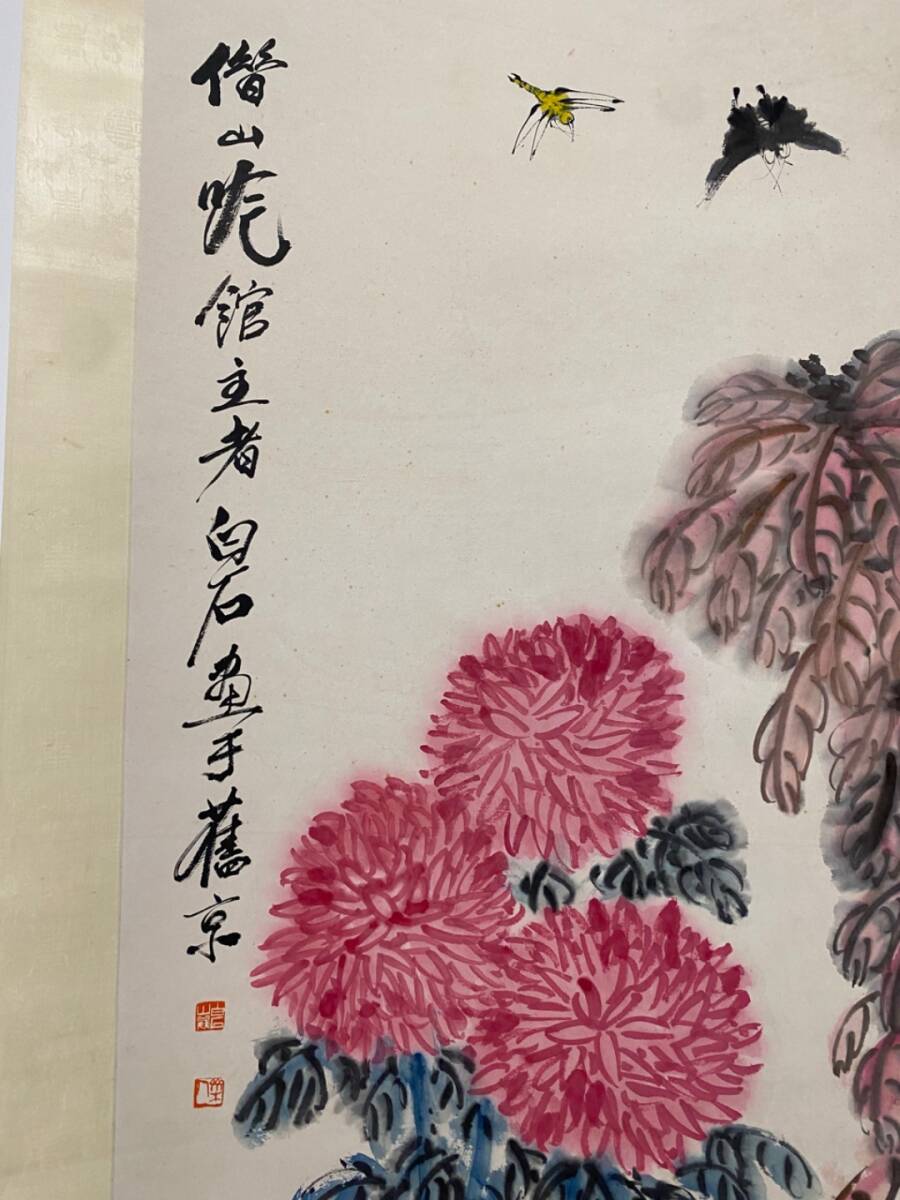 借山吟館主者白石画于舊京